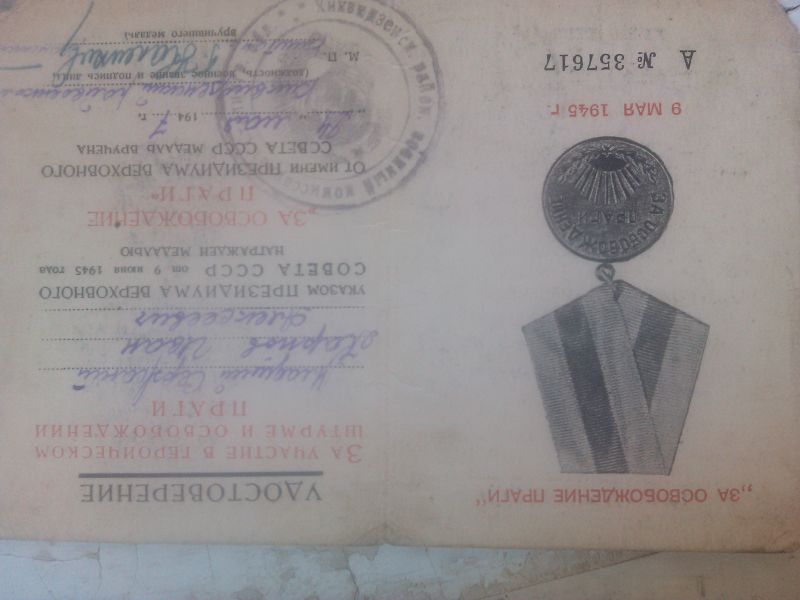 „ЗА ОСВОБОЖДЕНИЕ ПРАГИ“
ЗА ОСВОБОЖДЕНИЕ
ПРАГИ
9 МАЯ 1945 г.
А № 357617
УДОСТОВЕРЕНИЕ
ЗА УЧАСТИЕ В ГЕРОИЧЕСКОМ
ШТУРМЕ И ОСВОБОЖДЕНИИ
ПРАГИ
Младший Сержант
Карпов Иван
Алексеевич
УКАЗОМ ПРЕЗИДИУМА ВЕРХОВНОГО
СОВЕТА СССР от 9 июня 1945 года
НАГРАЖДЕН МЕДАЛЬЮ
„ЗА ОСВОБОЖДЕНИЕ
ПРАГИ“
ОТ ИМЕНИ ПРЕЗИДИУМА ВЕРХОВНОГО
СОВЕТА СССР МЕДАЛЬ ВРУЧЕНА
„24“ мая 1947 г.
Киквидзенский Райвоенком
(должность, военное звание и подпись лица,
М. П.
вручившего медаль)
Киквидзенск. район. военный комисс